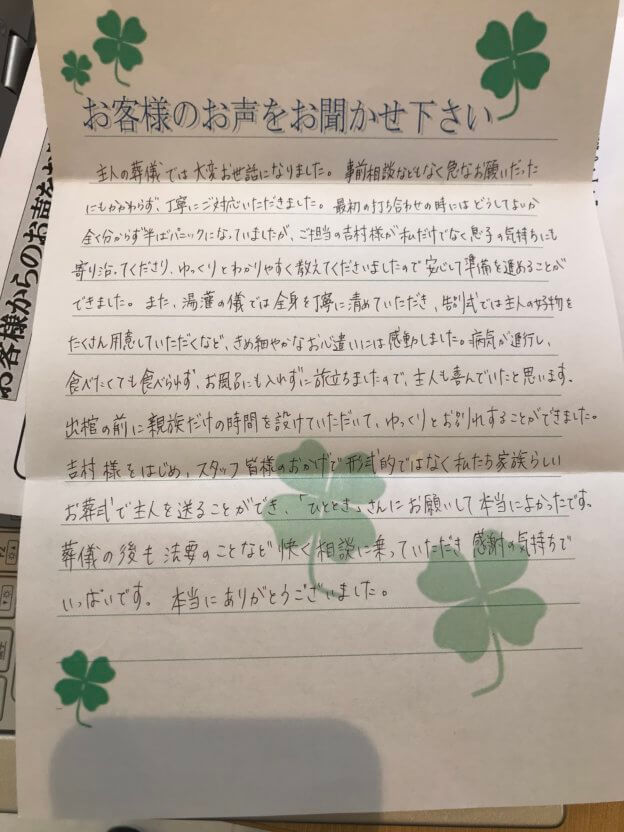 お客様のお声をお聞かせ下さい
主人の葬儀では大変お世話になりました。事前相談などもなく急なお願いだった
にもかかわらず、丁寧にご対応いただきました。最初の打ち合わせの時にはどうしてよいか
全く分からず半ばパニックになっていましたが、ご担当の吉村様が私だけでなく息子の気持ちにも
寄り沿ってくださり、ゆっくりとわかりやすく教えてくださいましたので安心して準備を進めることが
できました。また、湯灌の儀では全身を丁寧に清めていただき、告別式では主人の好物を
たくさん用意していただくなど、きめ細やかなお心遣いには感動しました。病気が進行し、
食べたくても食べられず、お風呂にも入れずに旅立ちましたので、主人も喜んでいたと思います。
出棺の前に親族だけの時間を設けていただいて、ゆっくりとお別れすることができました。
吉村様をはじめ、スタッフ皆様のおかげで形式的ではなく私たち家族らしい
お葬式で主人を送ることができ、「ひととき」さんにお願いして本当によかったです。
葬儀の後も法要のことなど快く相談に乗っていただき感謝の気持ちで
いっぱいです。本当にありがとうございました。
お客様からのお声をお